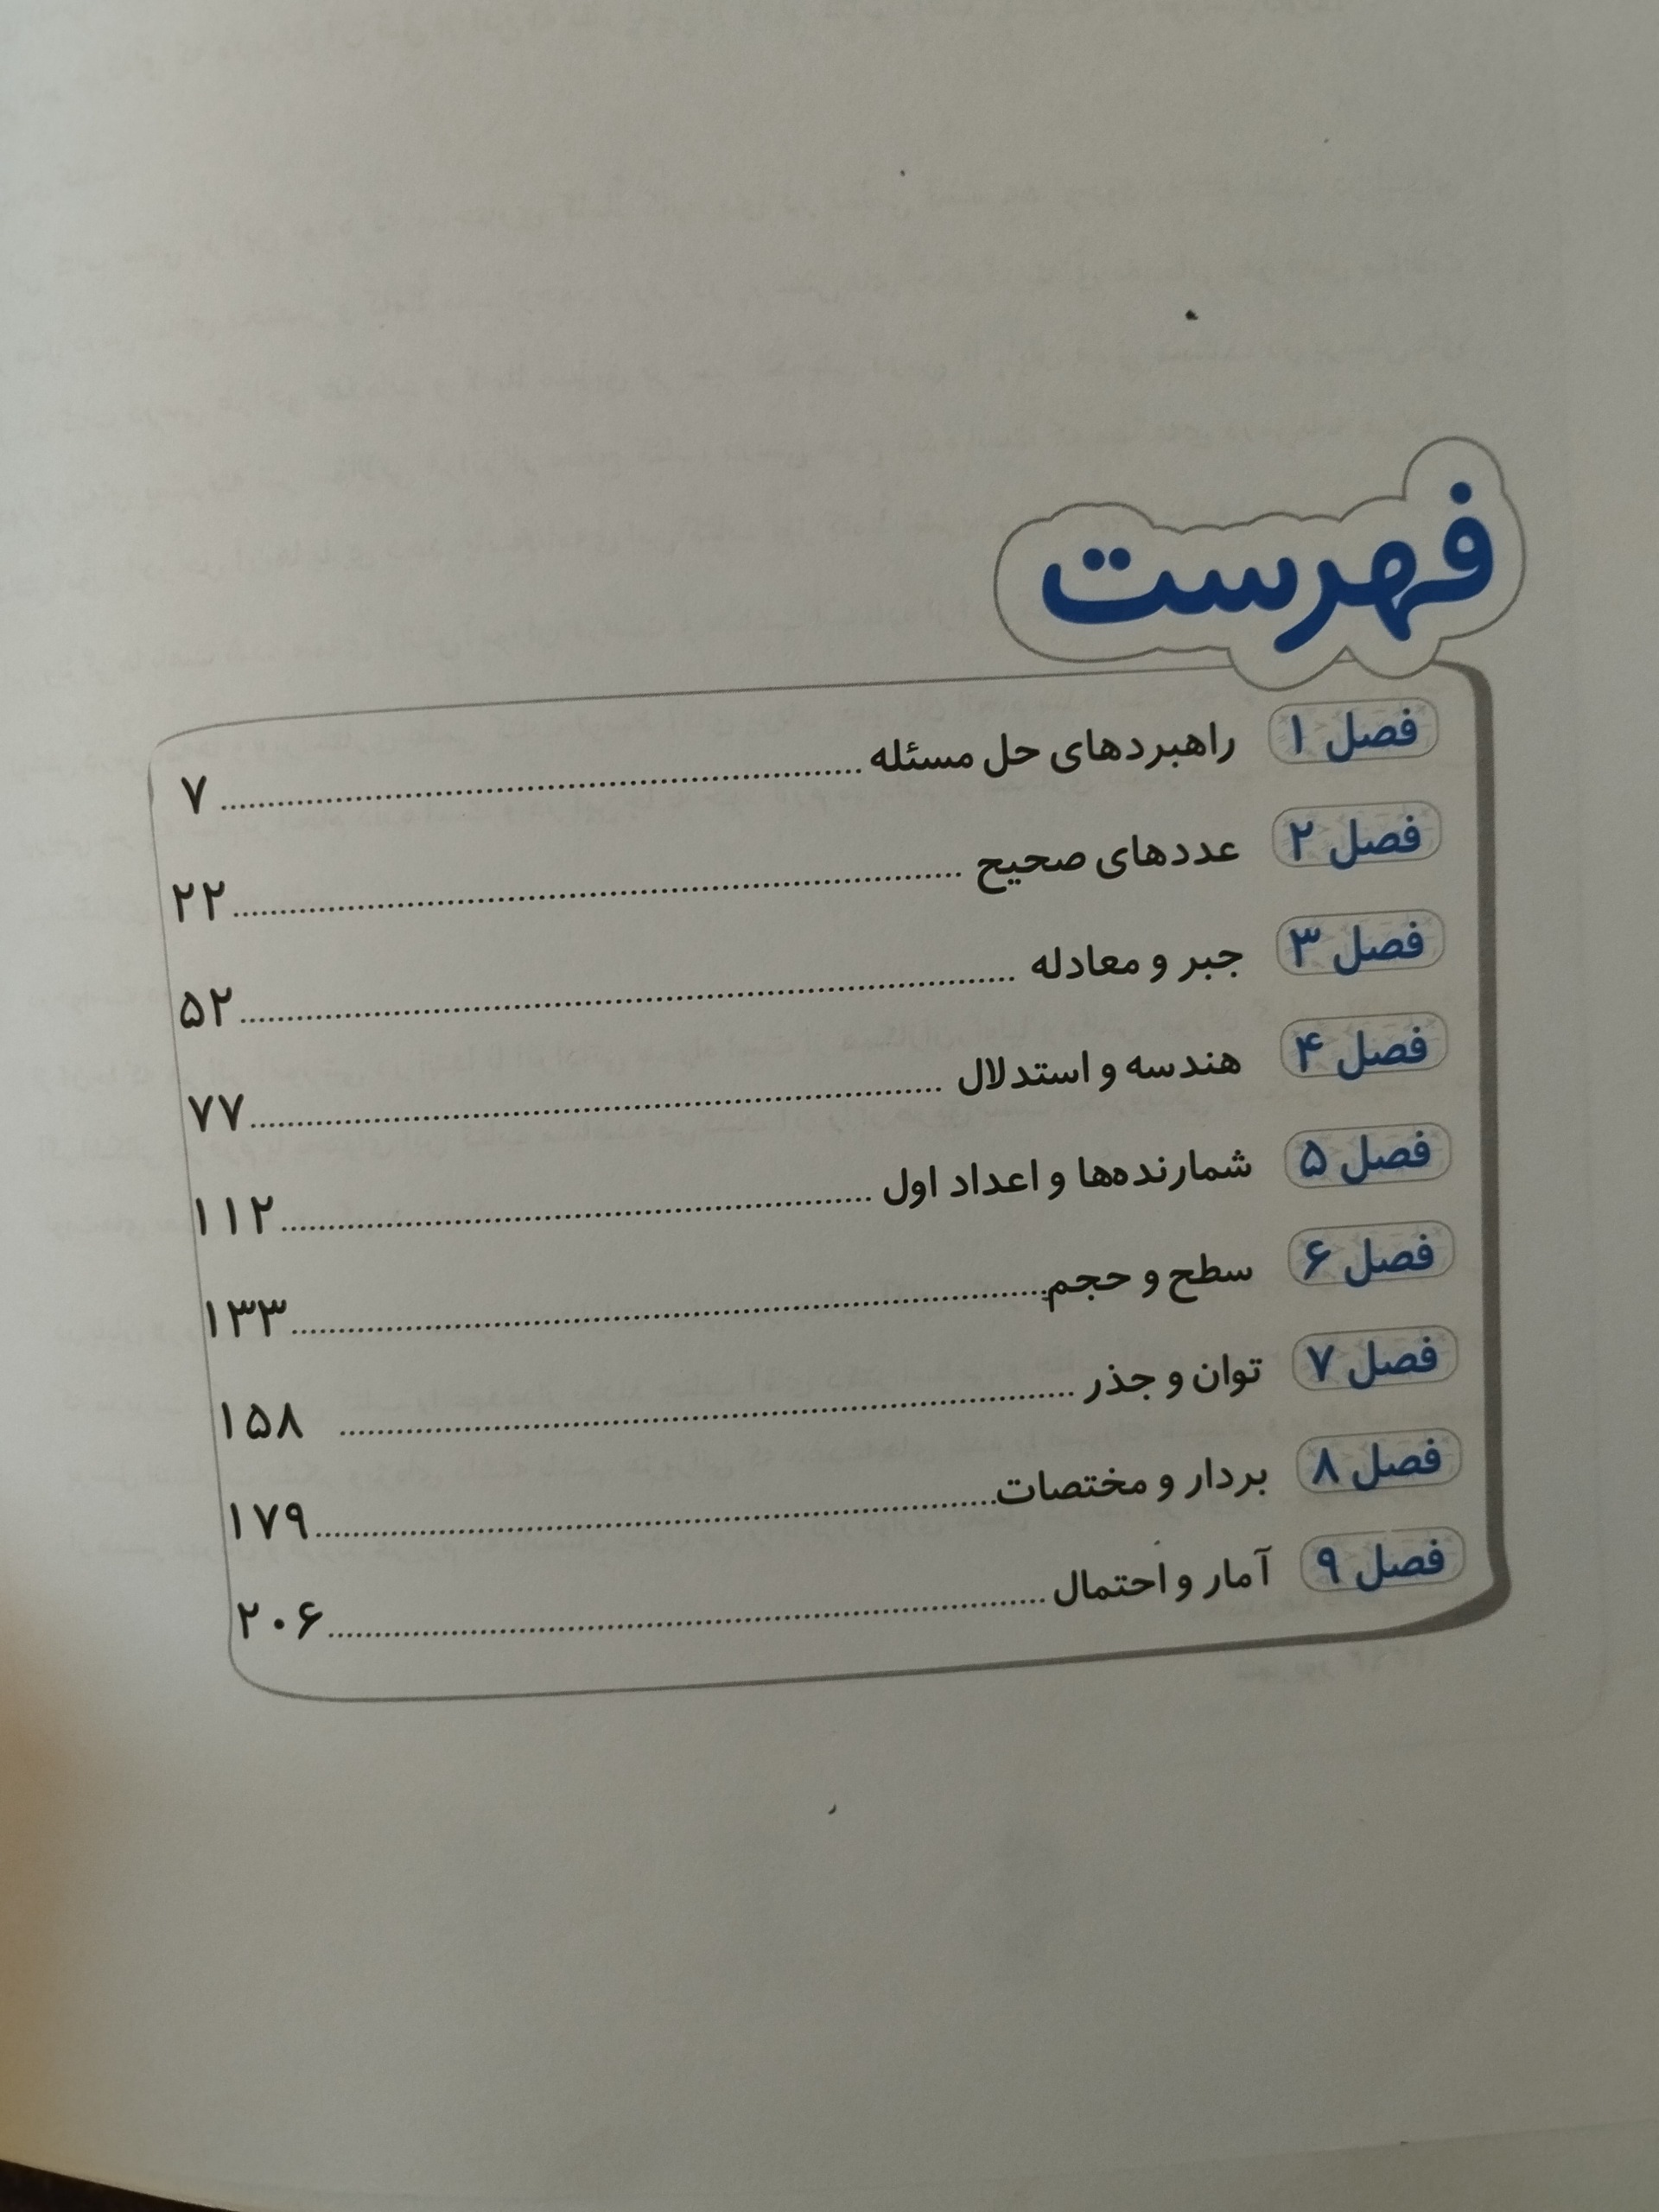 فهرست
فصل ۱ راهبردهای حل مسئله ........ ۷
فصل ۲ عددهای صحیح ........ ۲۲
فصل ۳ جبر و معادله ........ ۵۲
فصل ۴ هندسه و استدلال ........ ۷۷
فصل ۵ شمارنده‌ها و اعداد اول ........ ۱۱۲
فصل ۶ سطح و حجم ........ ۱۳۳
فصل ۷ توان و جذر ........ ۱۵۸
فصل ۸ بردار و مختصات ........ ۱۷۹
فصل ۹ آمار و احتمال ........ ۲۰۶